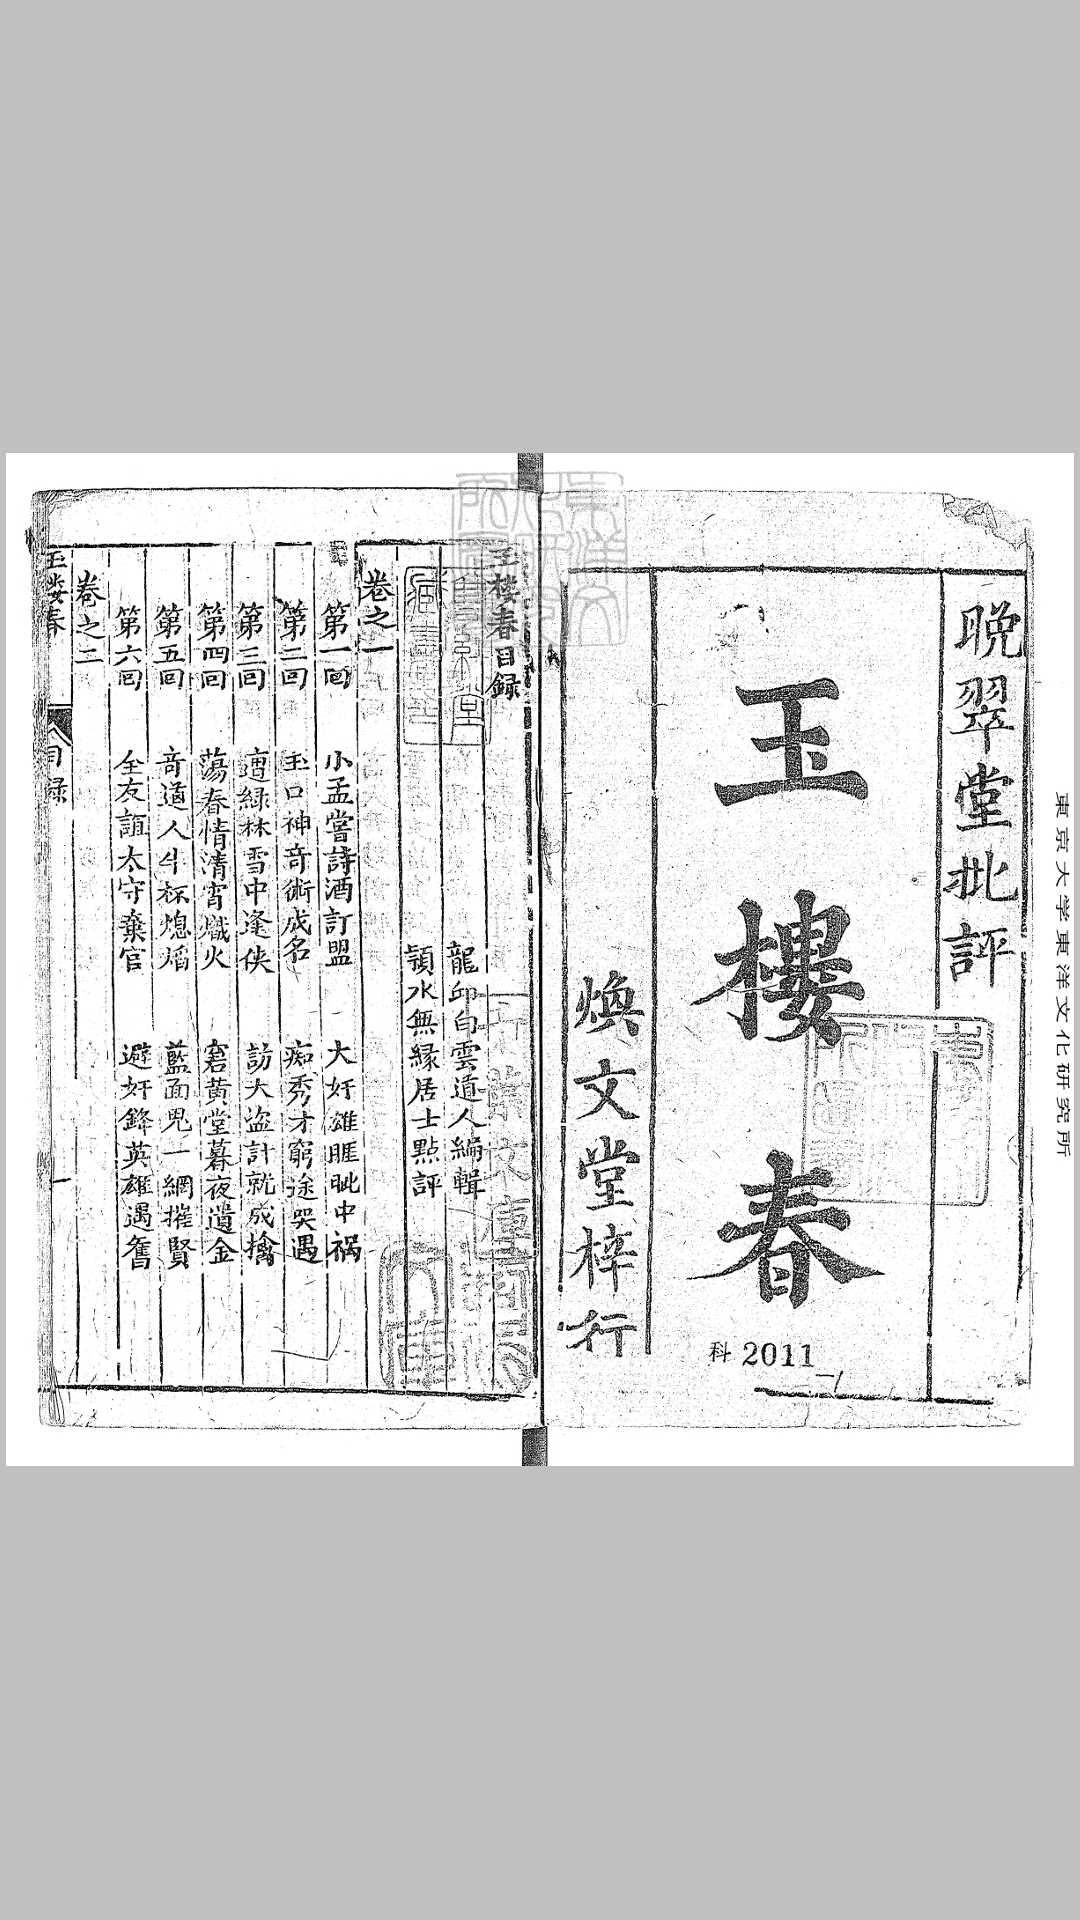 晚翠堂批評
玉樓春
煥文堂梓行
科 2011
東京大学東洋文化研究所
玉樓春目録
龍邱白雲道人編輯
頴水無緣居士點評
卷之一
第一回 小孟嘗詩酒訂盟 大奸雄睚眦中禍
第二回 玉口神奇術成名 痴秀才窮途哭遇
第三回 遭綠林雪中逢俠 訪大盜計就成擒
第四回 蕩春情清宵熾火 窘黄堂暮夜遺金
第五回 奇道人半杯熄焰 藍面鬼一網摧賢
第六回 全友誼太守棄官 避奸鋒英雄遇舊
卷之二
玉楼春 目録 一